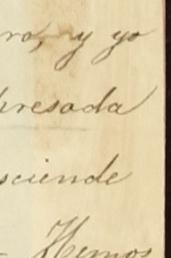 ro, y yo
presada
sciende
Hemos